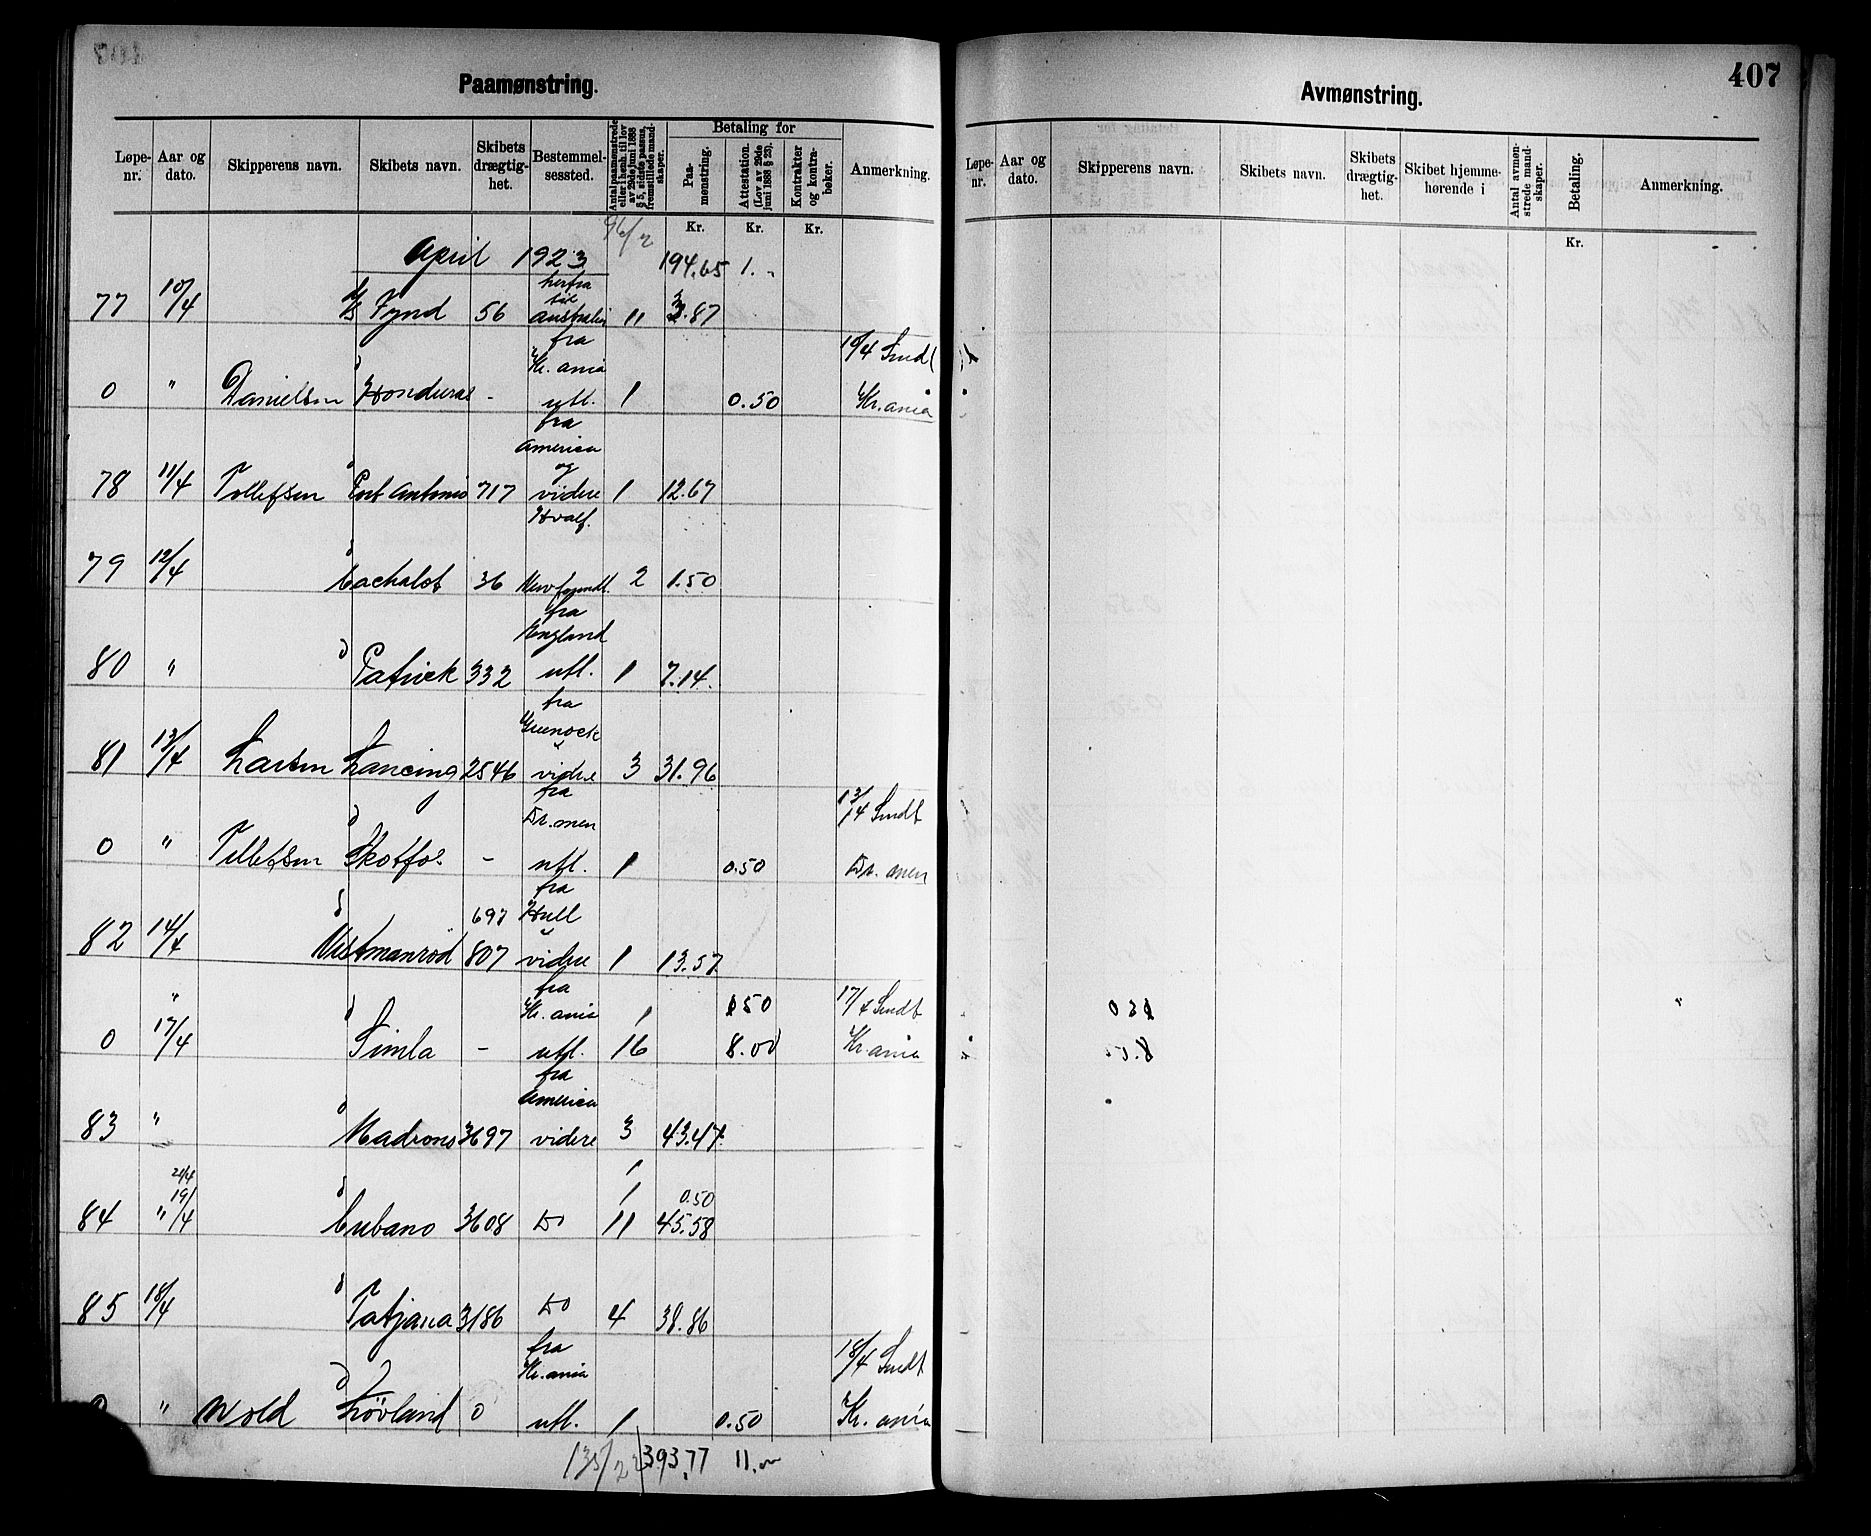 Paamønstring.
Løpe-nr. Aar og dato. Skipperens navn. Skibets navn. Skibets drægtig-het. Bestemmel-sessted. Antal paamønstrede eller i henh. til lov av 29de juni 1888 § 5, sidste passus, fremstillede mand-skaper. Betaling for Paa-mønstring. Attestation. (Lov av 29de juni 1888 § 25). Kontrakter og kontra-bøker. Anmerkning.
Kr. Kr. Kr.
96/2
April 1923 194.65 1.-
herfra
til
77 10/4 Fynd 56 Australia 11 3.87
fra
Kr.ania 10/4 Sendt
0 " Danielsen Honduras - utl. 1 0.50 Kr.ania
fra
America
og
78 11/4 Tollefsen Port Antonio 717 videre 1 12.67
Hvalf.
79 12/4 Cachalot 36 Newfoundl. 2 1.50
fra
England
80 " Patrick 332 utl. 1 7.14.
fra
Greenock
81 13/4 Larsen Lancing 2546 videre 3 31.96
fra
Dr.men 13/4 Sendt
0 " Tellefsen Skotfos - utl. 1 0.50 Dr.men
fra
697 Hull
82 14/4 Vestmanrød 807 videre 1 13.57
fra
" Kr.ania 1 0.50 17/4 Sendt
0 17/4 Simla - utl. 16 8.00 Kr.ania
fra
America
83 " Madrono 3697 videre 3 43.47
1
21/4 1 0.50
84 " 19/4 Cubano 3608 Do 11 45.58
85 18/4 Tatjana 3186 Do 4 38.86
fra
Kr.ania 18/4 Sendt
0 " Wold Løvland 0 utl. 1 0.50 Kr.ania
135/22 393,77 11.-
407
Avmønstring.
Løpe-nr. Aar og dato. Skipperens navn. Skibets navn. Skibets drægtig-het. Skibet hjemme-hørende i Antal avmøn-strede mand-skaper. Betaling. Anmerkning.
Kr.